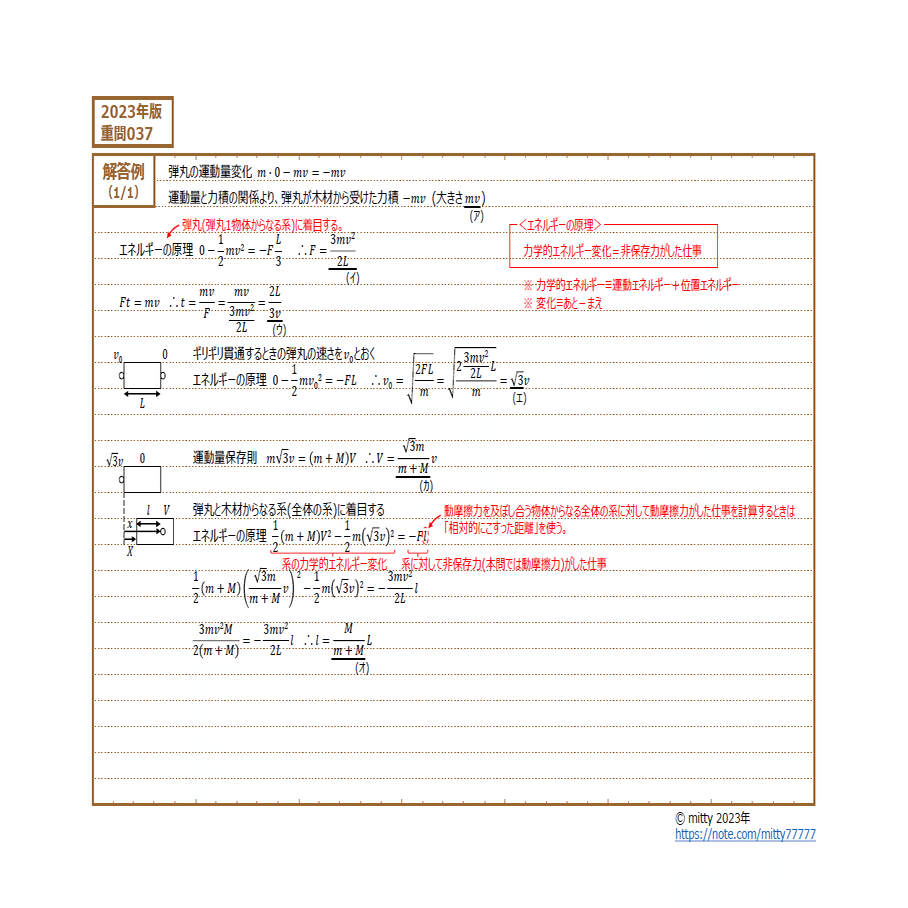 2023年版
重問037
解答例
(1/1)
弾丸の運動量変化 m・0－mv＝－mv
運動量と力積の関係より、弾丸が木材から受けた力積 －mv (大きさ mv)
(ア)
弾丸(弾丸1物体からなる系)に着目する。
エネルギーの原理 0－1/2 mv²＝－F L/3 ∴F＝3mv²/2L
(イ)
<エネルギーの原理>
力学的エネルギー変化＝非保存力がした仕事
※ 力学的エネルギー＝運動エネルギー＋位置エネルギー
※ 変化＝あと－まえ
Ft＝mv ∴t＝mv/F＝mv/(3mv²/2L)＝2L/3v
(ウ)
v₀ 0
L
ギリギリ貫通するときの弾丸の速さをv₀とおく
エネルギーの原理 0－1/2 mv₀²＝－FL ∴v₀＝√(2FL/m)＝√(2(3mv²/2L)L/m)＝√3v
(エ)
√3v 0
運動量保存則 m√3v＝(m＋M)V ∴V＝√3m/(m＋M) v
(カ)
l V
x
X
弾丸と木材からなる系(全体の系)に着目する
エネルギーの原理 1/2 (m＋M)V²－1/2 m(√3v)²＝－Fl
動摩擦力を及ぼし合う物体からなる全体の系に対して動摩擦力がした仕事を計算するときは
「相対的にこすった距離」を使う。
系の力学的エネルギー変化 系に対して非保存力(本問では動摩擦力)がした仕事
1/2 (m＋M)(√3m/(m＋M) v)²－1/2 m(√3v)²＝－3mv²/2L l
3mv²M/2(m＋M)＝－3mv²/2L l ∴l＝M/(m＋M) L
(オ)
© mitty 2023年
https://note.com/mitty77777